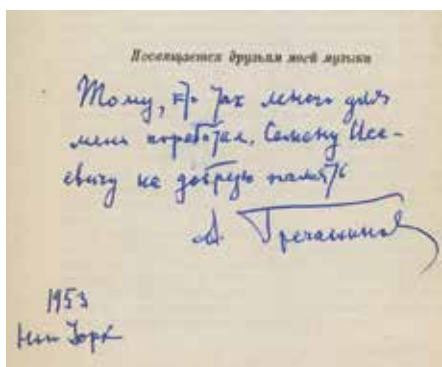 Посвящается друзьям моей музыки
Тому, кто так много для
меня поработал, Семену Исе-
евичу на добрую память
А. Гречанинов
1953
Нью Йорк